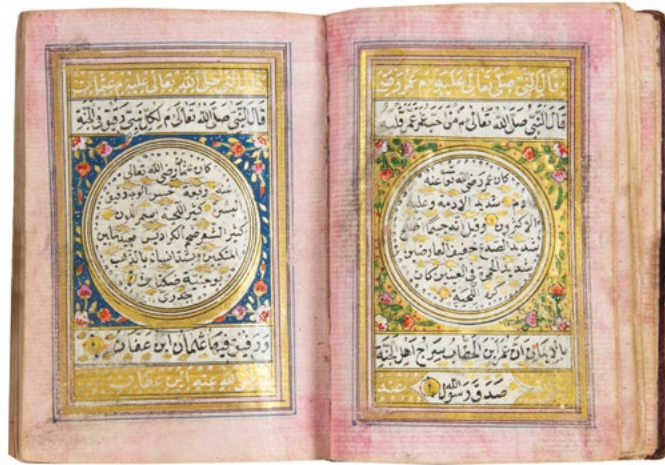 قال النبي صلى الله تعالى عليه م عمر رضي
قال النبي صلى الله تعالى م من احب عمر عمر قلبه
كان عمر رضي الله تعا عنه
شديد الادمة وعليه
الاكثرون وقيل
شديد الصدغ خفيف العارضين
شديد الحمرة في العينين كان
كبير اللحية
بالايمان ان عمر ابن الخطاب سراج اهل الجنة
صدق رسول الله
عنه
قال النبي صلى الله تعالى عليه م عثمان
قال النبي صلى الله تعالى م لكل نبي رفيق في الجنة
كان عثمان رضي الله تعالى
عنه ربعة حسن الوجه رقيق
البشرة كثير اللحية اسمر اللون
كثير الشعر ضخم الكراديس بعيد ما بين
المنكبين يشد اسنانه بالذهب
بوجنتيه نكتات
جدري
ورفيقي فيها عثمان ابن عفان
الله عنه ابن عفان